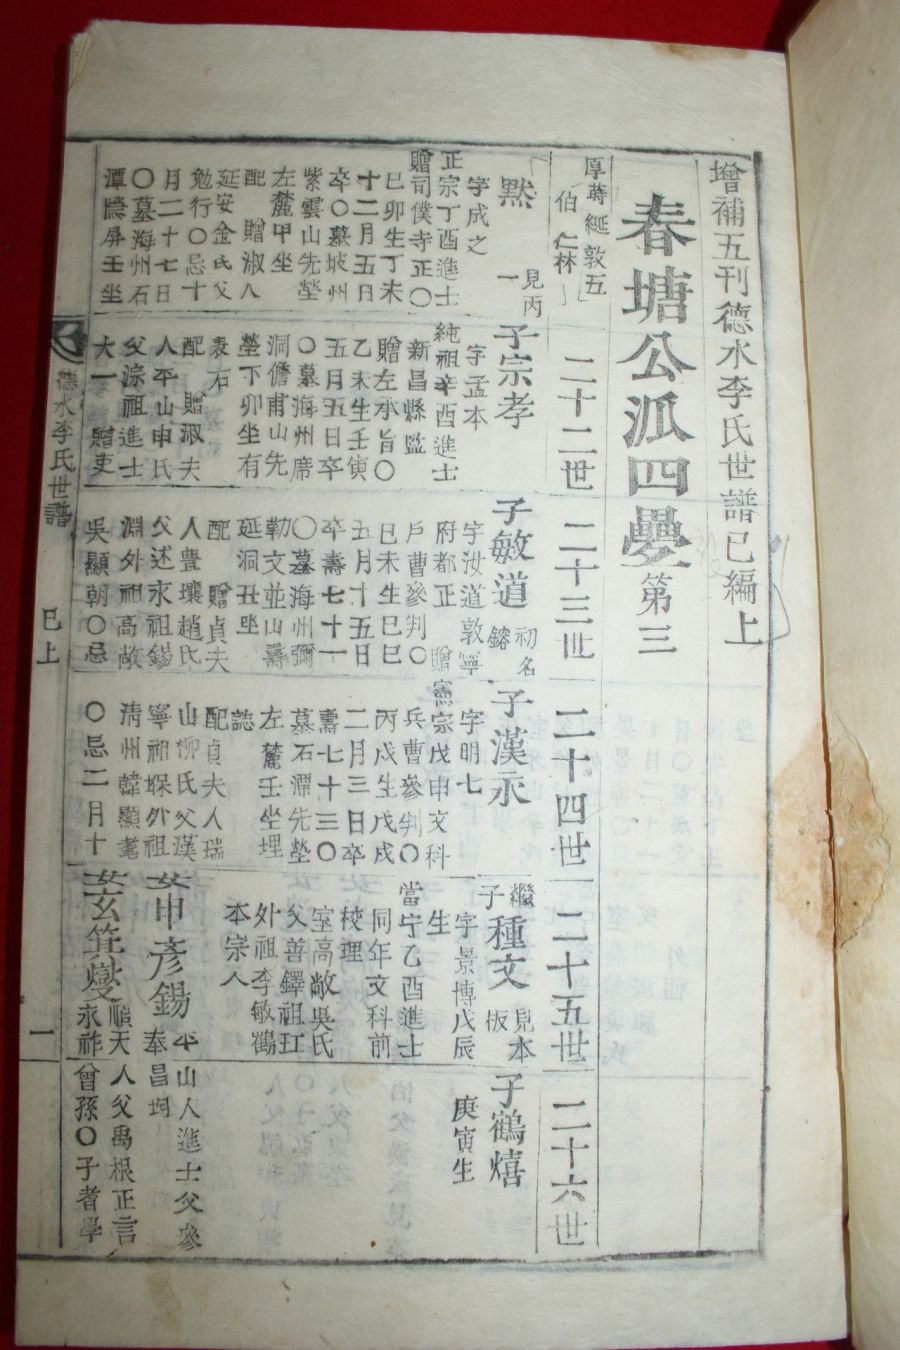 增補五刊德水李氏世譜巳編上
春塘公派四疊第三
厚蒔綖敦五
伯仁林
二十二世
二十三世
二十四世
二十五世
二十六世
默 見丙一
字成之
正宗丁酉進士
贈司僕寺正〇
巳卯生丁未
十二月五日
卒〇墓坡州
紫雲山先塋
左麓甲坐
配 贈淑人
延安金氏父
勉行〇忌十
月二十七日
〇墓海州石
潭隱屏壬坐
子宗孝
字孟本
純祖辛酉進士
新昌縣監
贈左承旨〇
乙未生壬寅
五月五日卒
〇墓海州席
洞儋甫山先
塋下卯坐有
表石
配 贈淑夫
人平山申氏
父淙祖進士
大一 贈吏
子敏道 初名鎔
字汝道敦寧
府都正 贈
戶曹參判〇
巳未生巳巳
五月十五日
卒壽七十一
〇墓海州彌
勒文並山壽
延洞丑坐
配 贈貞夫
人豊壤趙氏
父述永祖錫
淵外祖高敞
吳顯朝〇忌
子漢永
字明七
憲宗戊申文科
兵曹參判〇
丙戌生戊戌
二月三日卒
壽七十三〇
墓石潭先塋
左麓壬坐埋
誌
配貞夫人瑞
山柳氏父漢
寧祖㻐外祖
淸州韓顯耆
〇忌二月十
繼子種文 見本板
字景博戊辰
生
當宁乙酉進士
同年文科前
校理
室高敞吳氏
父善鐸祖玒
外祖李敏鶴
本宗人
女申彥錫 平山人進士父參奉昌均
女玄箕燮 順天人父禹根正言永祚曾孫〇子者學
子鶴熺
庚寅生
德水李氏世譜
巳上
一